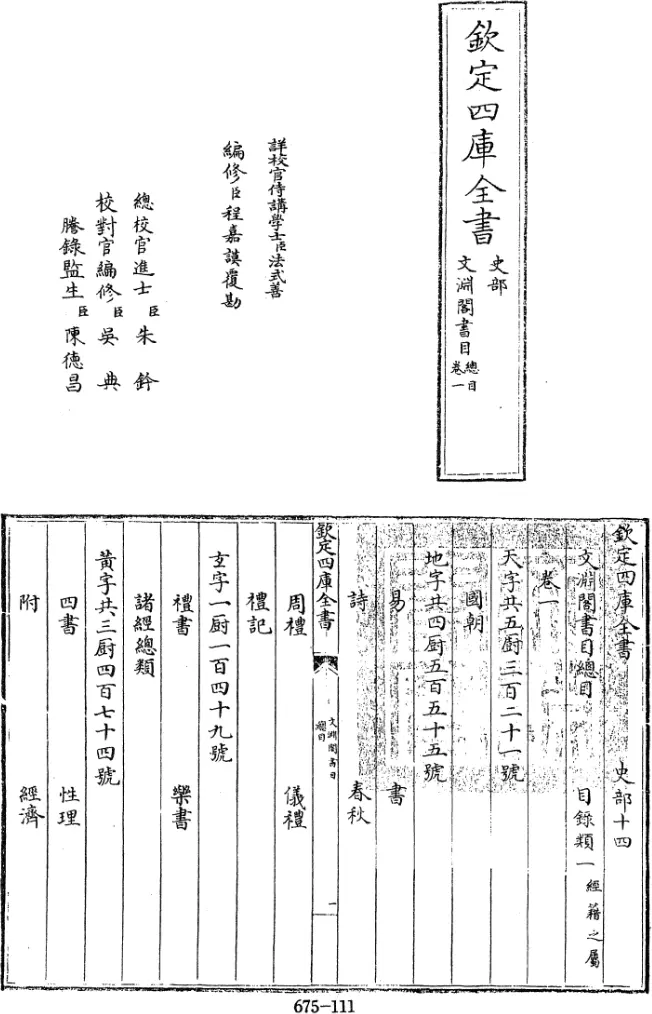 欽定四庫全書
史部
文淵閣書目
總目
卷一
詳校官侍講學士臣法式善
編修臣程嘉謨覆勘
總校官進士臣朱鈐
校對官編修臣吳典
謄錄監生臣陳德昌
欽定四庫全書 史部十四
文淵閣書目總目 目錄類一 經籍之屬
卷一
天字共五廚三百二十一號
國朝
地字共四廚五百五十五號
易 書
詩 春秋
欽定四庫全書
文淵閣書目
總目
一
周禮 儀禮
禮記
玄字一廚一百四十九號
禮書 樂書
諸經總類
黃字共三廚四百七十四號
四書 性理
附 經濟
675-111